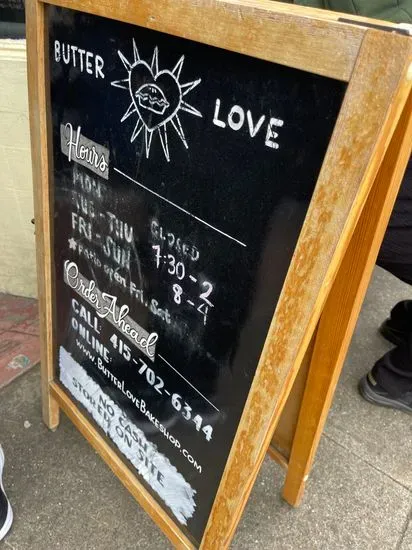 BUTTER LOVE
Hours
MON CLOSED
TUE - THU 7:30 - 2
FRI - SUN 8 - 4
open Fri, Sat
Order Ahead
CALL: 415-702-6344
ONLINE:
www.BUTTERLOVEBAKESHOP.COM
NO CASH
STORED ON SITE